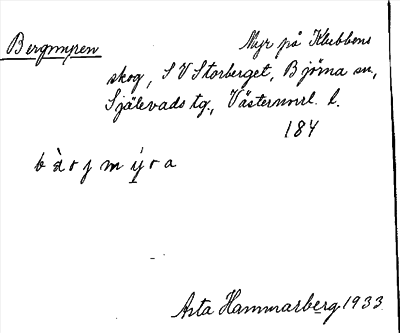 Bergmyren
Myr på Klubbens
skog, SV Storberget, Björna sn,
Själevads tg., Västernrrl. l.
184
b à r j m ý r a
Asta Hammarberg 1933